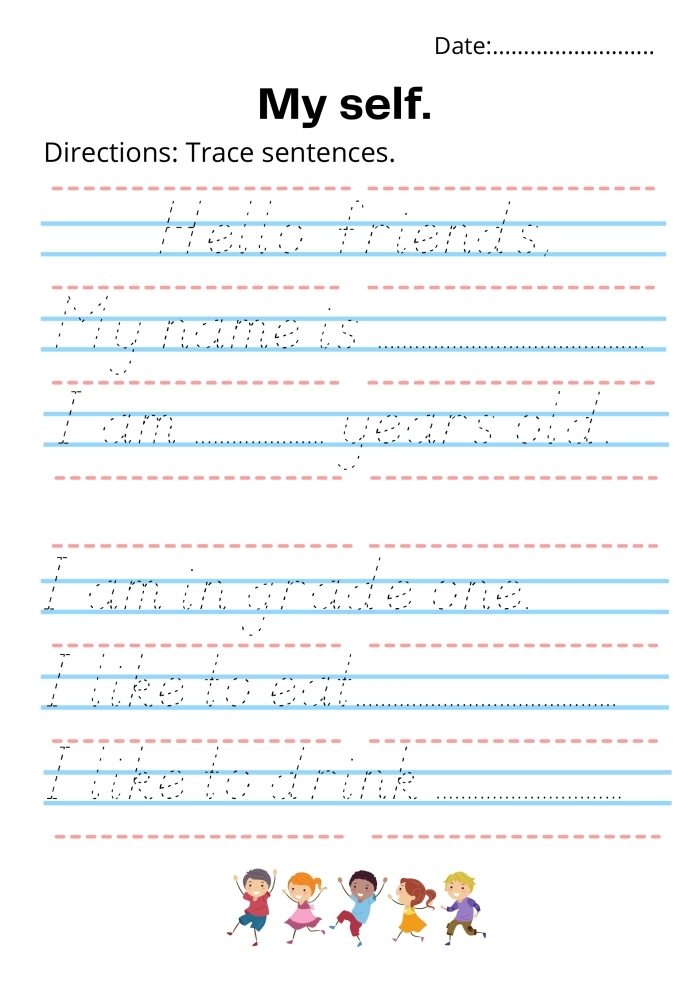 Date:..........................
My self.
Directions: Trace sentences.
Hello friends,
My name is ..............................................
I am ...................... years old.
I am in grade one.
I like to eat.............................................
I like to drink ................................